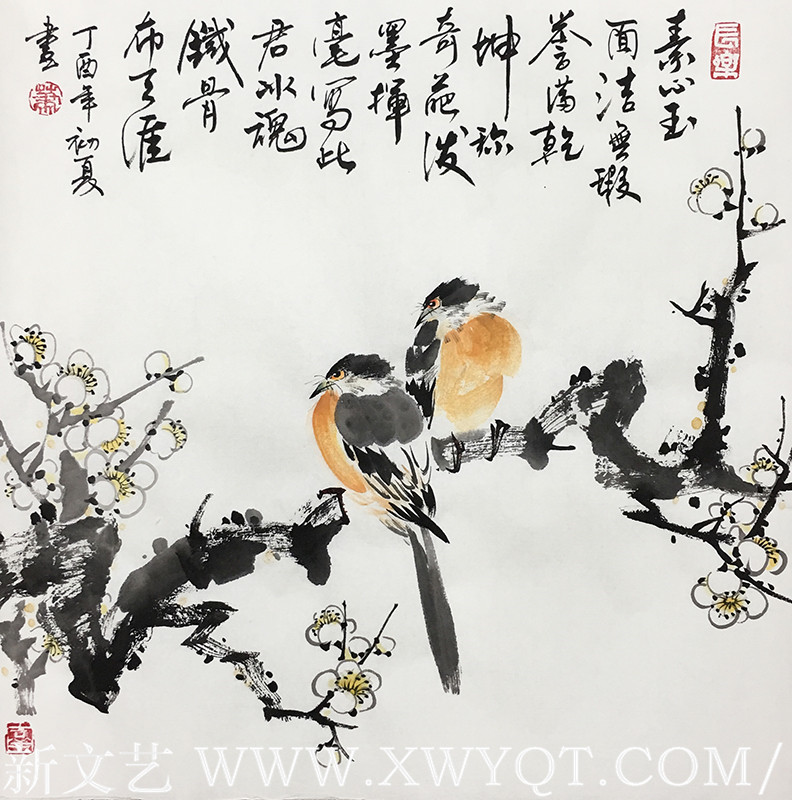 素心玉
面洁無瑕
誉满乾
坤称
奇葩泼
墨揮
毫寫此
君冰魂
鐵骨
布天涯
丁酉年初夏
畫
長樂
新文艺 WWW.XWYQT.COM/